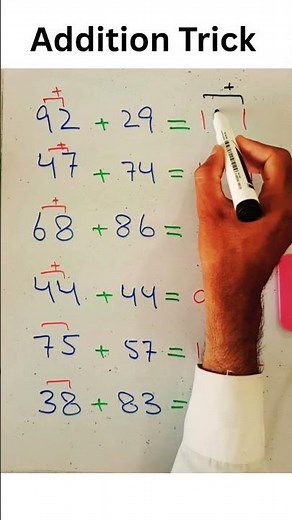 Addition Trick
+ +
92 + 29 = 1 1
+
47 + 74 =
+
68 + 86 =
+
44 + 44 = 0
75 + 57 = 1
38 + 83 =